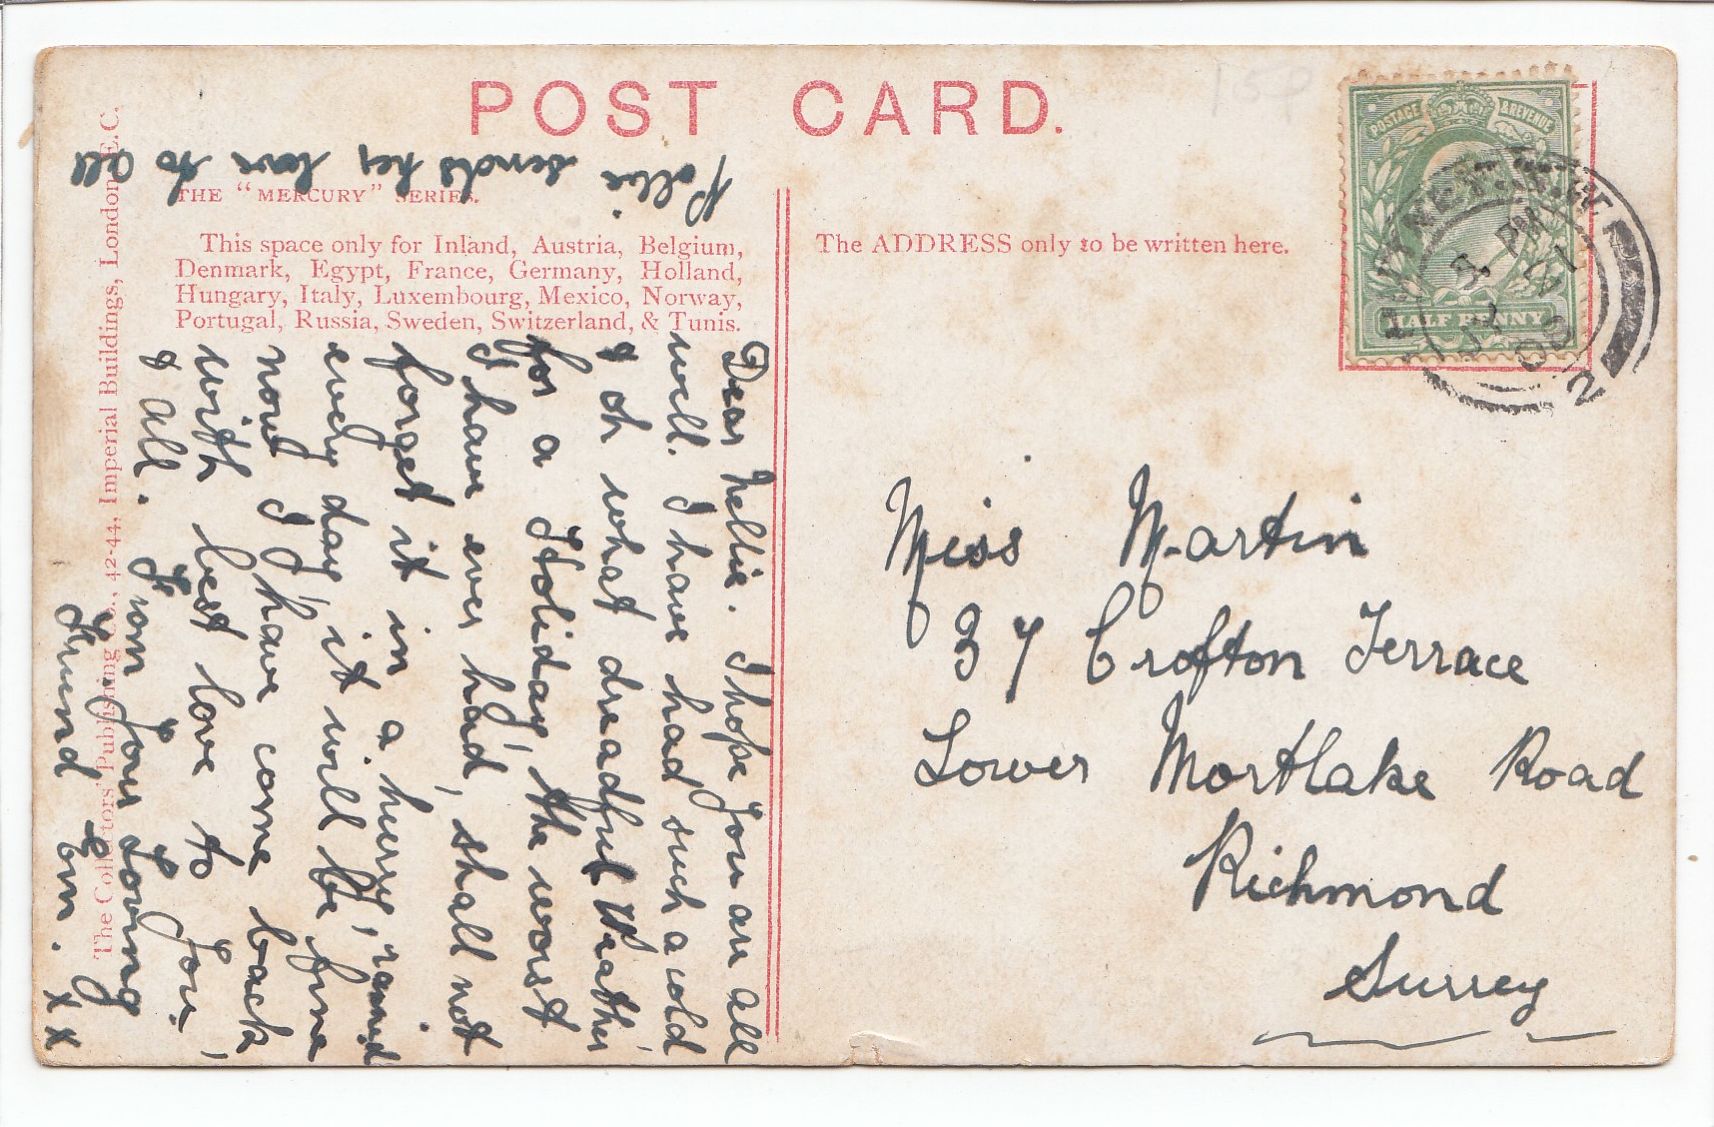 POST CARD.
THE "MERCURY" SERIES.
This space only for Inland, Austria, Belgium,
Denmark, Egypt, France, Germany, Holland,
Hungary, Italy, Luxembourg, Mexico, Norway,
Portugal, Russia, Sweden, Switzerland, & Tunis.
The ADDRESS only to be written here.
The Collectors' Publishing Co., 42-44, Imperial Buildings, London, E.C.
Pollie sends her love to all
Dear Nellie. I hope you are all
well. I have had such a cold
& oh what dreadful Weather
for a Holiday, the worst
I have ever had, shall not
forget it in a hurry, rained
every day, it will be fine
now I have come back
with best love to you,
& all.
From your Loving
Friend Em. x x
POSTAGE & REVENUE
HALF PENNY
PM
2
Miss Martin
37 Crofton Terrace
Lower Mortlake Road
Richmond
Surrey
15p